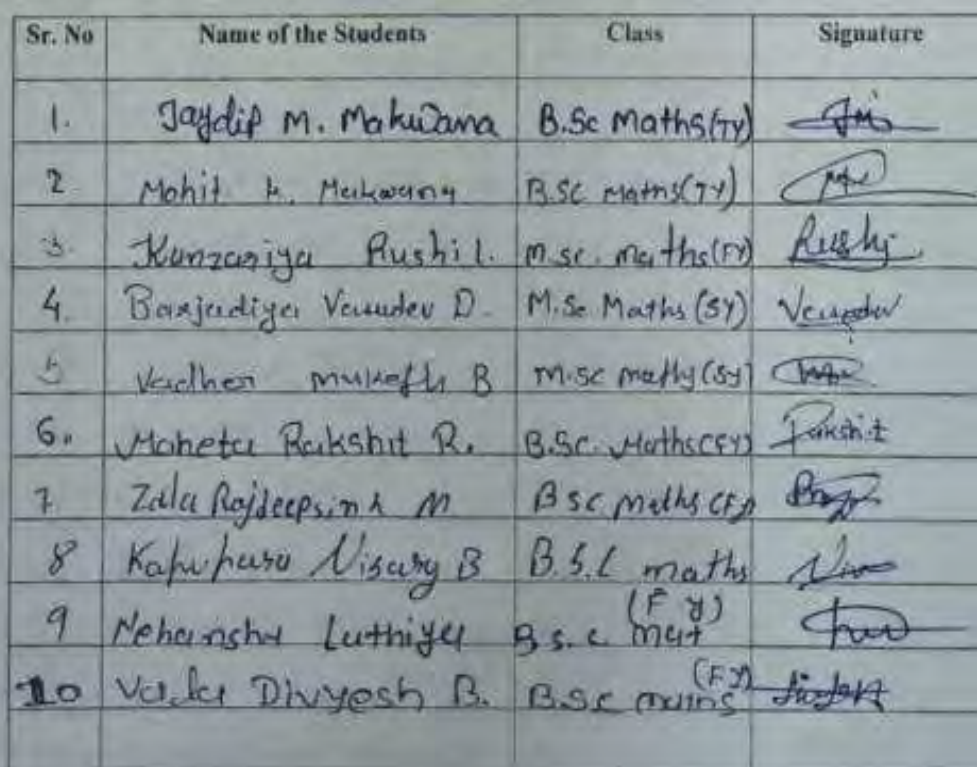 Sr. No Name of the Students Class Signature
1. Jaydip M. Makwana B.Sc Maths(TY)
2 Mohit K. Makwana B.SC Maths(TY)
3. Kunzariya Rushi l. M.sc. maths(FY) Rushi
4. Barjadiya Vasudev D. M.Sc Maths (SY) Vasudev
5 Vadher mukesh B M.sc maths (SY)
6. Maheta Rakshit R. B.Sc. Maths(FY) Rakshit
7. Zala Rajdeepsinh M B sc Maths (FY)
8 B B.S.C maths
(F Y)
9 Luthiya B.s.c mat
(FY)
10 Vala Divyesh B. B.Sc maths